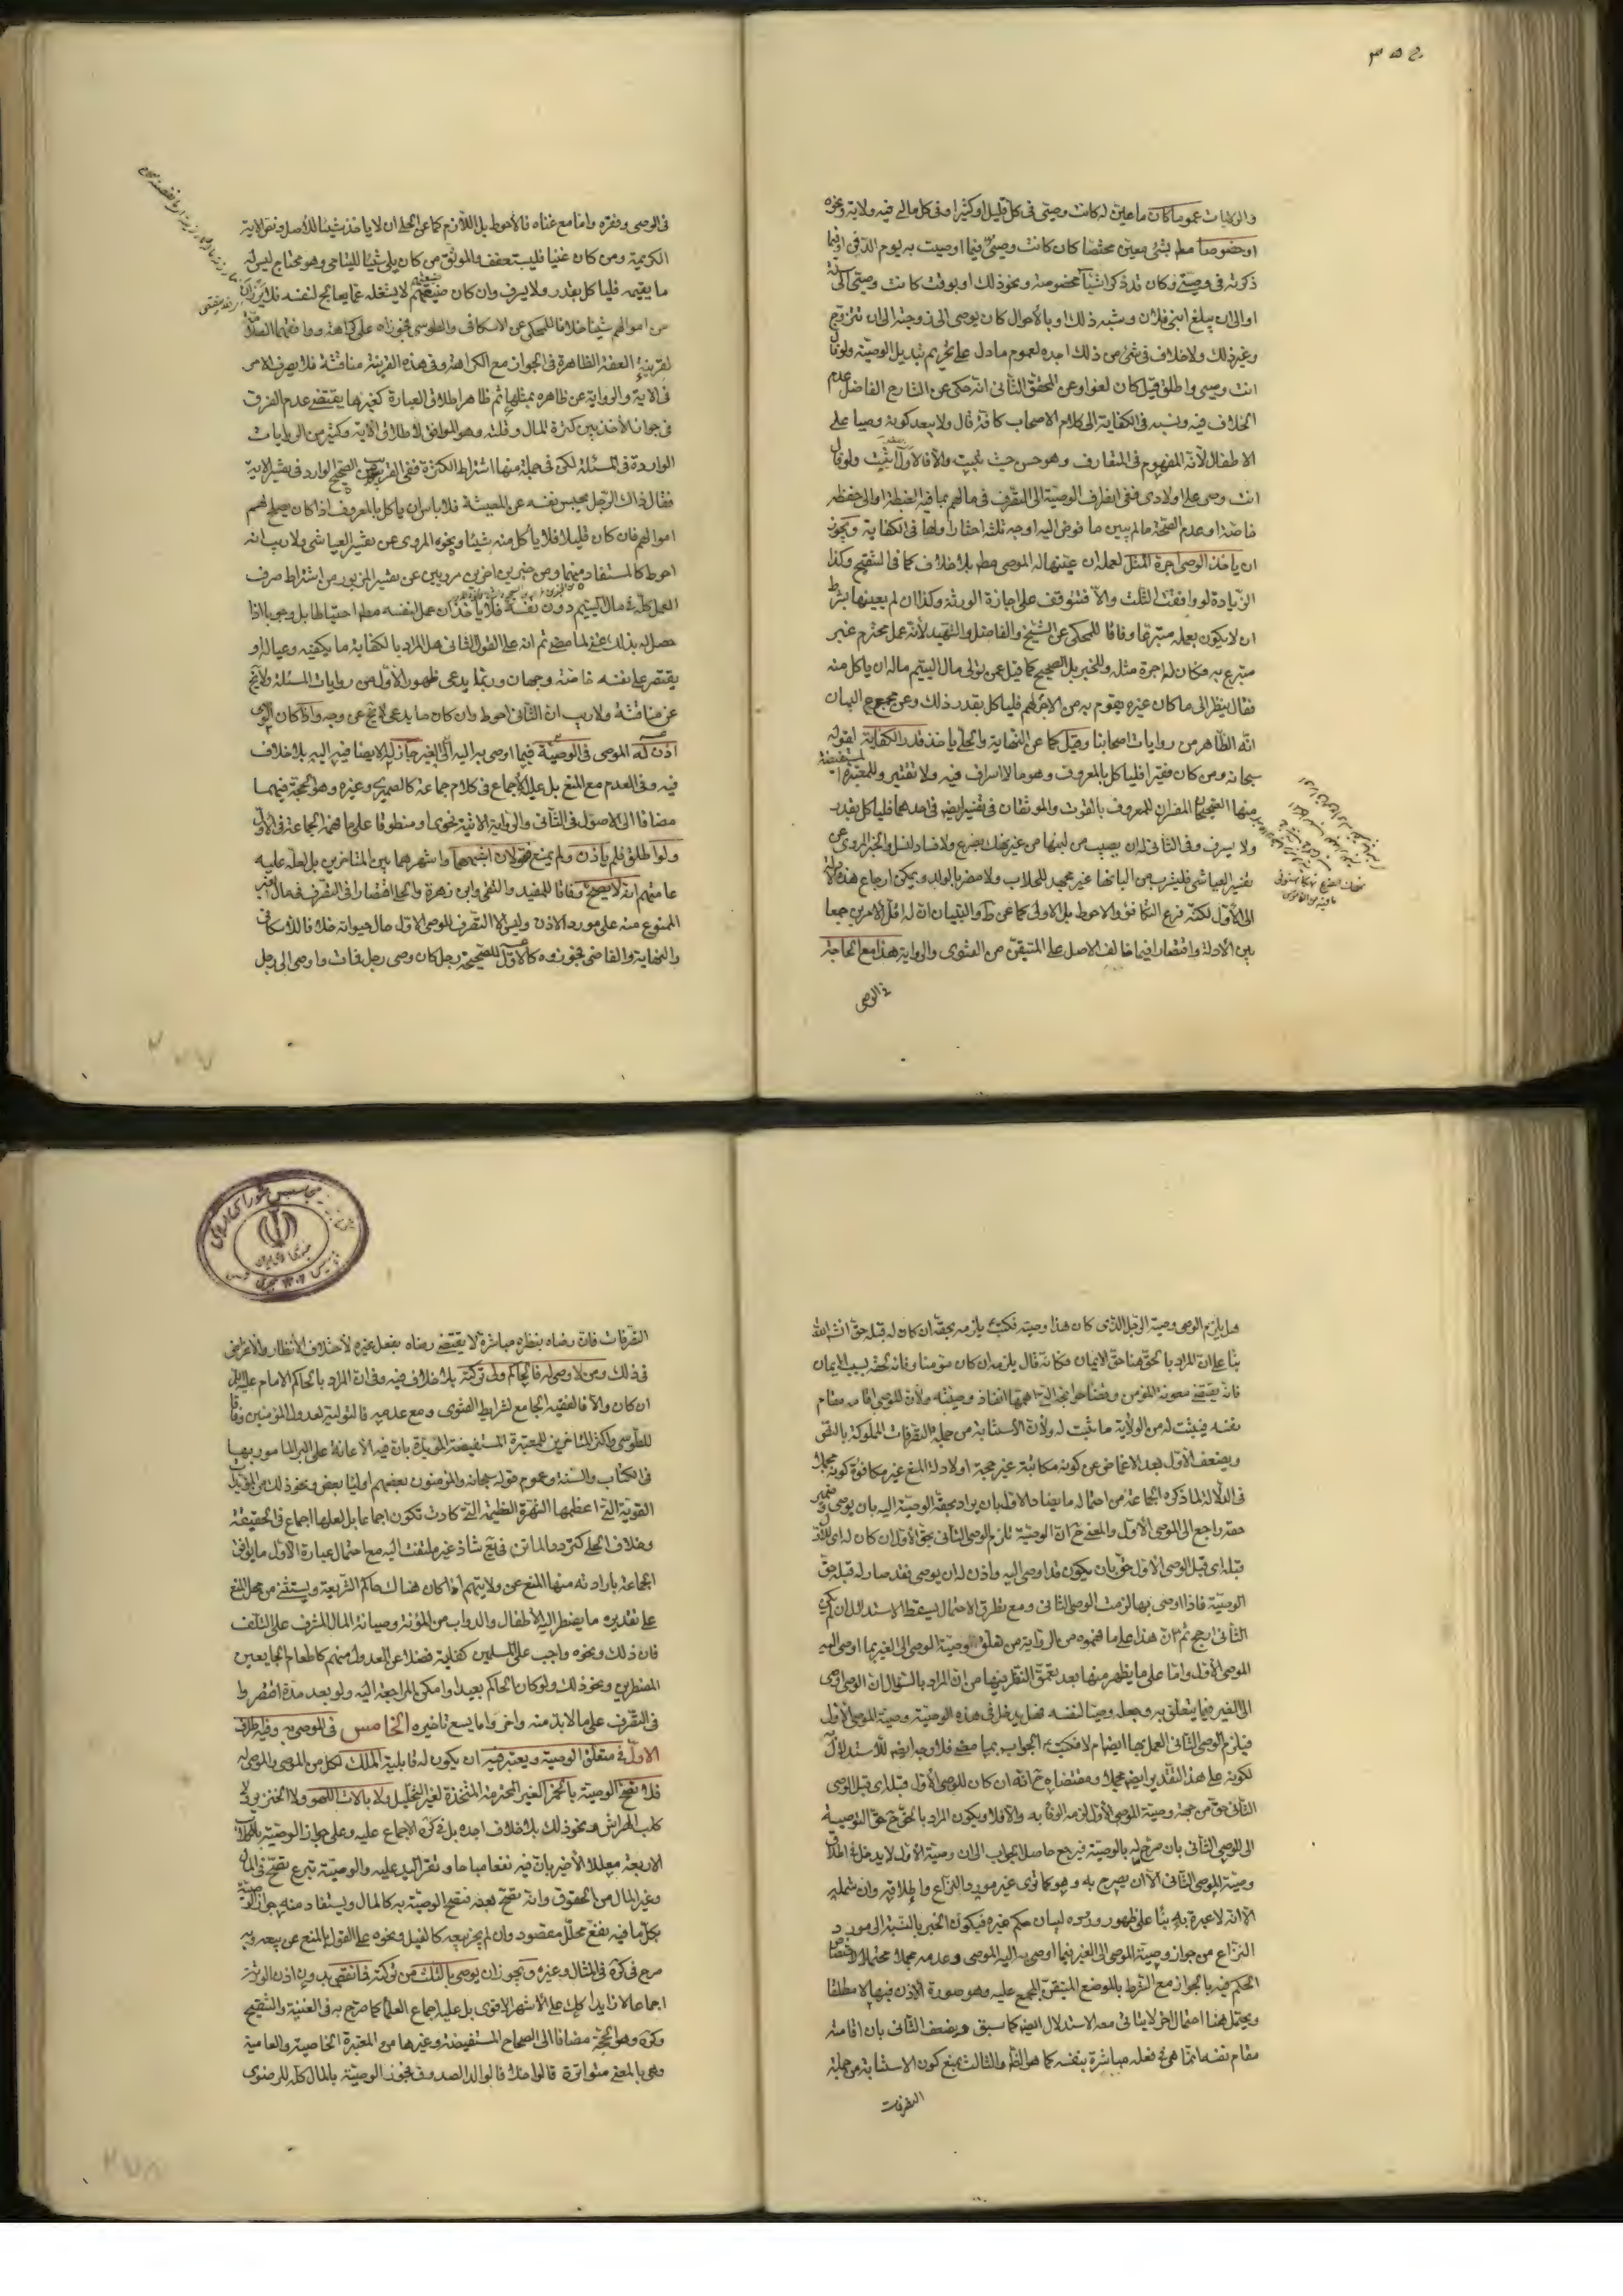 والولايات عموما كان ماعين له كانت وصيتي في كل قليل او كثير او في كل مالي فيه ولاية ونحوه
او خصوصا مط بشئ معين مختصا كان كانت وصيي فيما اوصيت به يوم الذي او فيما
ذكرته في وصيتي وكان قد ذكر اشياء مخصوصة ونحو ذلك او بوقت كانت وصيتي الى سنة
او الى ان يبلغ ابني فلان وشبه ذلك او بالاحوال كان يوصى الى زوجته الى ان تتزوج
وغير ذلك ولا خلاف في شئ من ذلك اجده لعموم ما دل على تحريم تبديل الوصية ولو قال
انت وصيي واطلق قيل كان لغوا وعن المحقق الثاني انه حكى عن الشارح الفاضل عدم
الخلاف فيه ونسبه في الكفاية الى كلام الاصحاب كافة قال ولا يبعد كونه وصيا على
الاطفال لانه المفهوم في المتعارف وهو حسن حيث يثبت والا فالاول اثبت ولو قال
انت وصي على اولادي ففي انصراف الوصية الى التصرف في مالهم بما فيه الغبطة او الى حفظه
خاصة او عدم الصحة مالم يبين ما فوض اليه اوجه ثلثة اختار اولها في الكفاية ويجوز
ان ياخذ الوصي اجرة المثل لعمله ان عينها له الموصي مط بلا خلاف كما في التنقيح وكذا
الزيادة لو وافقت الثلث والا فتتوقف على اجازة الورثة وكذا ان لم يعينها بشرط
ان لا يكون بعمله متبرعا وفاقا للمحكي عن الشيخ والفاضل والشهيد لانه عمل محترم غير
متبرع به فكان له اجرة مثله وللخبر بل الصحيح كما قيل عمن تولى مال اليتيم ماله ان ياكل منه
فقال ينظر الى ما كان غيره يقوم به من الاجر لهم فلياكل بقدر ذلك وعن مجمع البيان
انه الظاهر من روايات اصحابنا وقيل كما عن النهاية والحلي ياخذ قدر الكفاية لقوله
سبحانه ومن كان فقيرا فلياكل بالمعروف وهو مالا اسراف فيه ولا تقتير وللمعتبرة المستفيضة
منها الصحيحان المفسران للمعروف بالقوت والموثقان في تفسيره ايضا في احدهما فلياكل بقدر
ولا يسرف وفي الثاني له ان يصيب من لبنها من غير نهك بضرع ولا فساد لنسل والخبر المروي عن
تفسير العياشي فليشرب من البانها غير مجهد للحلاب ولا مضر بالولد ويمكن ارجاع هذه الادلة
الى الاول لكنه فرع التكافؤ والاحوط بل الاولى كما عن ط والتبيان ان له اقل الامرين جمعا
بين الادلة واقتصارا فيما خالف الاصل على المتيقن من الفتوى والرواية هذا مع الحاجة
في الوصي
في الوصي وفقره واما مع غناه فالاحوط بل اللازم كما عن الحلي ان لا ياخذ شيئا للاصل ونص الاية
الكريمة ومن كان غنيا فليستعفف والموثق من كان يلي شيئا لليتامى وهو محتاج ليس له
ما يقيمه فلياكل بقدر ولا يسرف وان كان ضيعتهم لا يشغله عما يعالج لنفسه فلا يرزان
من اموالهم شيئا خلافا للمحكي عن الاسكافي والطوسي فجوزاه على كراهة ووافقهما العلامة
لقرينة العفة الظاهرة في الجواز مع الكراهة وفي هذه القرينة مناقشة فلا يصرف الامر
في الاية والرواية عن ظاهره بمثلها ثم ظاهر اطلاق العبارة كغيرها يقتضي عدم الفرق
في جواز الاخذ بين كثرة المال وقلته وهو الموافق لاطلاق الاية وكثير من الروايات
الواردة في المسئلة لكن في جملة منها اشتراط الكثرة ففي القريب من الصحيح الوارد في تفسير الاية
فقال ذاك الرجل يحبس نفسه عن المعيشة فلا باس ان ياكل بالمعروف اذا كان يصلح لهم
اموالهم فان كان قليلا فلا يأكل منه شيئا ونحوه المروي عن تفسير العياشي ولا ريب انه
احوط كالمستفاد منهما ومن خبرين اخرين مرويين عن تفسير المزبور من اشتراط صرف
العمل كله في مال اليتيم دون نفسه فلا ياخذ ان عمل لنفسه مط احتياطا بل وجوبا اذا
حصل له بذلك غنى لما مضى ثم انه على القول الثاني هل المراد بالكفاية ما يكفيه وعياله او
يقتصر على نفسه خاصة وجهان وربما يدعى ظهور الاول من روايات المسئلة ولا يخ
عن مناقشة ولا ريب ان الثاني احوط وان كان ما يدعى لا يخ عن وجه واذا كان الموصي
اذن له الموصي في الوصية فيما اوصى به اليه الى الغير جاز له الايصاء فيه اليه بلا خلاف
فيه وفي العدم مع المنع بل عليه الاجماع في كلام جماعة كالصيمري وغيره وهو الحجة فيهما
مضافا الى الاصول في الثاني والرواية الاتية فحوى او منطوقا على ما فهمه الجماعة في الاول
ولو اطلق فلم ياذن ولم يمنع فقولان اشبههما واشهرهما بين المتاخرين بل لعله عليه
عامتهم انه لا يصح وفاقا للمفيد والتقي وابن زهرة والحلي اقتصارا في التصرف في مال الغير
الممنوع منه على مورد الاذن وليس الا التصرف للوصي الاول حال حيوته خلافا للاسكافي
والنهاية والقاضي فجوزوه كالاول للصحيحة رجل كان وصي رجل فمات واوصى الى رجل
هل يلزم الوصي وصية الرجل الذي كان هذا وصيه فكتب يلزمه بحقه ان كان له قبله حق انشاء الله
بناء على ان المراد بالحق هنا حق الايمان فكانه قال يلزمه ان كان مؤمنا وفائه لحقه بسبب الايمان
فانه يقتضي معونة المؤمن وقضاء حوائجه التي اهمها انفاذ وصيته ولان الموصي اقامه مقام
نفسه فيثبت له من الولاية ما ثبت له ولان الاستنابة من جملة التصرفات المملوكة بالنص
ويضعف الاول بعد الاغماض عن كونه مكاتبة غير حجة او لادلة المنع غير مكافوة كونه مجملا
في الدلالة لما ذكره الجماعة من احتماله ما يضاد الاول بان يراد بحقه الوصية اليه بان يوصى وضمير
حقه راجع الى الموصي الاول والمعنى ح ان الوصية تلزم الوصي الثاني بحق الاول ان كان له اي للاول
قبله اي قبل الوصي الاول حق بان يكون قد اوصى اليه واذن له ان يوصي فقد صار له قبله حق
الوصية فاذا اوصى بها لزمت الوصي الثاني ومع تطرق الاحتمال يسقط الاستدلال ان لم يكن
الثاني ارجح ثم ان هذا على ما فهموه من الرواية من تعلق وصية الموصي الى الغير بما اوصى اليه
الموصي الاول واما على ما يظهر منها بعد تعمق النظر فيها من ان المراد بالسؤال ان الوصي اوصى
الى الغير فيما يتعلق به وجعله وصيا لنفسه فهل يدخل في هذه الوصية وصية الموصي الاول
فيلزم الوصي الثاني العمل بها ايضا ام لا فكتب الجواب بما مضى فلا وجه ايضا للاستدلال
لكونه على هذا التقدير ايضا مجملا ومقتضاه ح انه ان كان للموصي الاول قبله اي قبل الوصي
الثاني حق من جهة وصية الموصي الاول لزمه الوفاء به والا فلا ويكون المراد بالحق ح حق التوصية
الى الوصي الثاني بان صرح له بالوصية فيرجع حاصل الجواب الى ان وصية الاول لا يدخل في اطلاق
وصية الموصي الثاني الا ان يصرح به وهو كما ترى غير مورد النزاع واطلاقه وان شمله
الا انه لا عبرة به بناء على ظهور وروده لبيان حكم غيره فيكون الخبر بالنسبة الى مورد
النزاع من جواز وصية الموصي الى الغير فيما اوصى به اليه الموصي وعدمه مجملا محتملا لاختصاص
الحكم فيه بالجواز مع الشرط بالموضع المتيقن المجمع عليه وهو صورة الاذن فيها لا مطلقا
ويحتمل هنا احتمال اخر لا يتاتى معه الاستدلال ايضا كما سبق ويضعف الثاني بان اقامته
مقام نفسه انما هو في فعله مباشرة بنفسه كما هو الظاهر والثالث بمنع كون الاستنابة من جملة
التصرفات
التصرفات فان رضاه بنظره مباشرة لا يقتضي رضاه بفعل غيره لاختلاف الانظار والاغراض
في ذلك ومن لا وصي له فالحاكم ولي تركته بلا خلاف فيه وفي ان المراد بالحاكم الامام عليه السلام
ان كان والا فالفقيه الجامع لشرايط الفتوى ومع عدمه فالتولية لعدول المؤمنين وفاقا
للطوسي واكثر المتاخرين للمعتبرة المستفيضة المؤيدة بان فيه الاعانة على البر المامور بها
في الكتاب والسنة وعموم قوله سبحانه والمؤمنون بعضهم اولياء بعض ونحو ذلك من المؤيدات
القوية التي اعظمها الشهرة العظيمة التي كادت تكون اجماعا بل لعلها اجماع في الحقيقة
وخلاف الحلي كتردد الماتن في يع شاذ غير ملتفت اليه مع احتمال عبارة الاول ما يوافق
الجماعة بارادته منها المنع عن ولايتهم اذا كان هناك حاكم الشريعة ويستثنى من محل المنع
على تقديره ما يضطر اليه الاطفال والدواب من المؤنة وصيانة المال المشرف على التلف
فان ذلك ونحوه واجب على المسلمين كفاية فضلا عن العدول منهم كاطعام الجايعين
المضطرين ونحو ذلك ولو كان الحاكم بعيدا وامكن المراجعة اليه ولو بعد مدة اقتصروا
في التصرف على مالا بد منه واخروا ما يسع تاخيره الخامس في الموصى به وفيه اطراف
الاول في متعلق الوصية ويعتبر فيه ان يكون له قابلية الملك لكل من الموصي والموصى له
فلا تصح الوصية بالخمر الغير المحترمة المتخذة لغير التخليل ولا بالات اللهو ولا الخنزير ولا
كلب الهراش ونحو ذلك بلا خلاف اجده بل في كره الاجماع عليه وعلى جواز الوصية بالكلاب
الاربعة معللا الاخير بان فيه نفعا مباحا وتقر اليد عليه والوصية تبرع تصح في المال
وغير المال من الحقوق وانه تصح هبته فتصح الوصية به كالمال ويستفاد منه جواز الوصية
بكل ما فيه نفع محلل مقصود وان لم يجز بيعه كالفيل ونحوه على القول بالمنع عن بيعه وبه
صرح في كره في المثال وغيره ويجوز ان يوصي بالثلث من تركته فما نقص بدون اذن الورثة
اجماعا لا زايدا كك على الاشهر الاقوى بل عليه اجماع العلماء كما صرح به في الغنية والتنقيح
وكره وهو الحجة مضافا الى الصحاح المستفيضة وغيرها من المعتبرة الخاصية والعامية
وهي بالمعنى متواترة قالوا خلافا لوالد الصدوق فجوز الوصية بالمال كله للرضوي